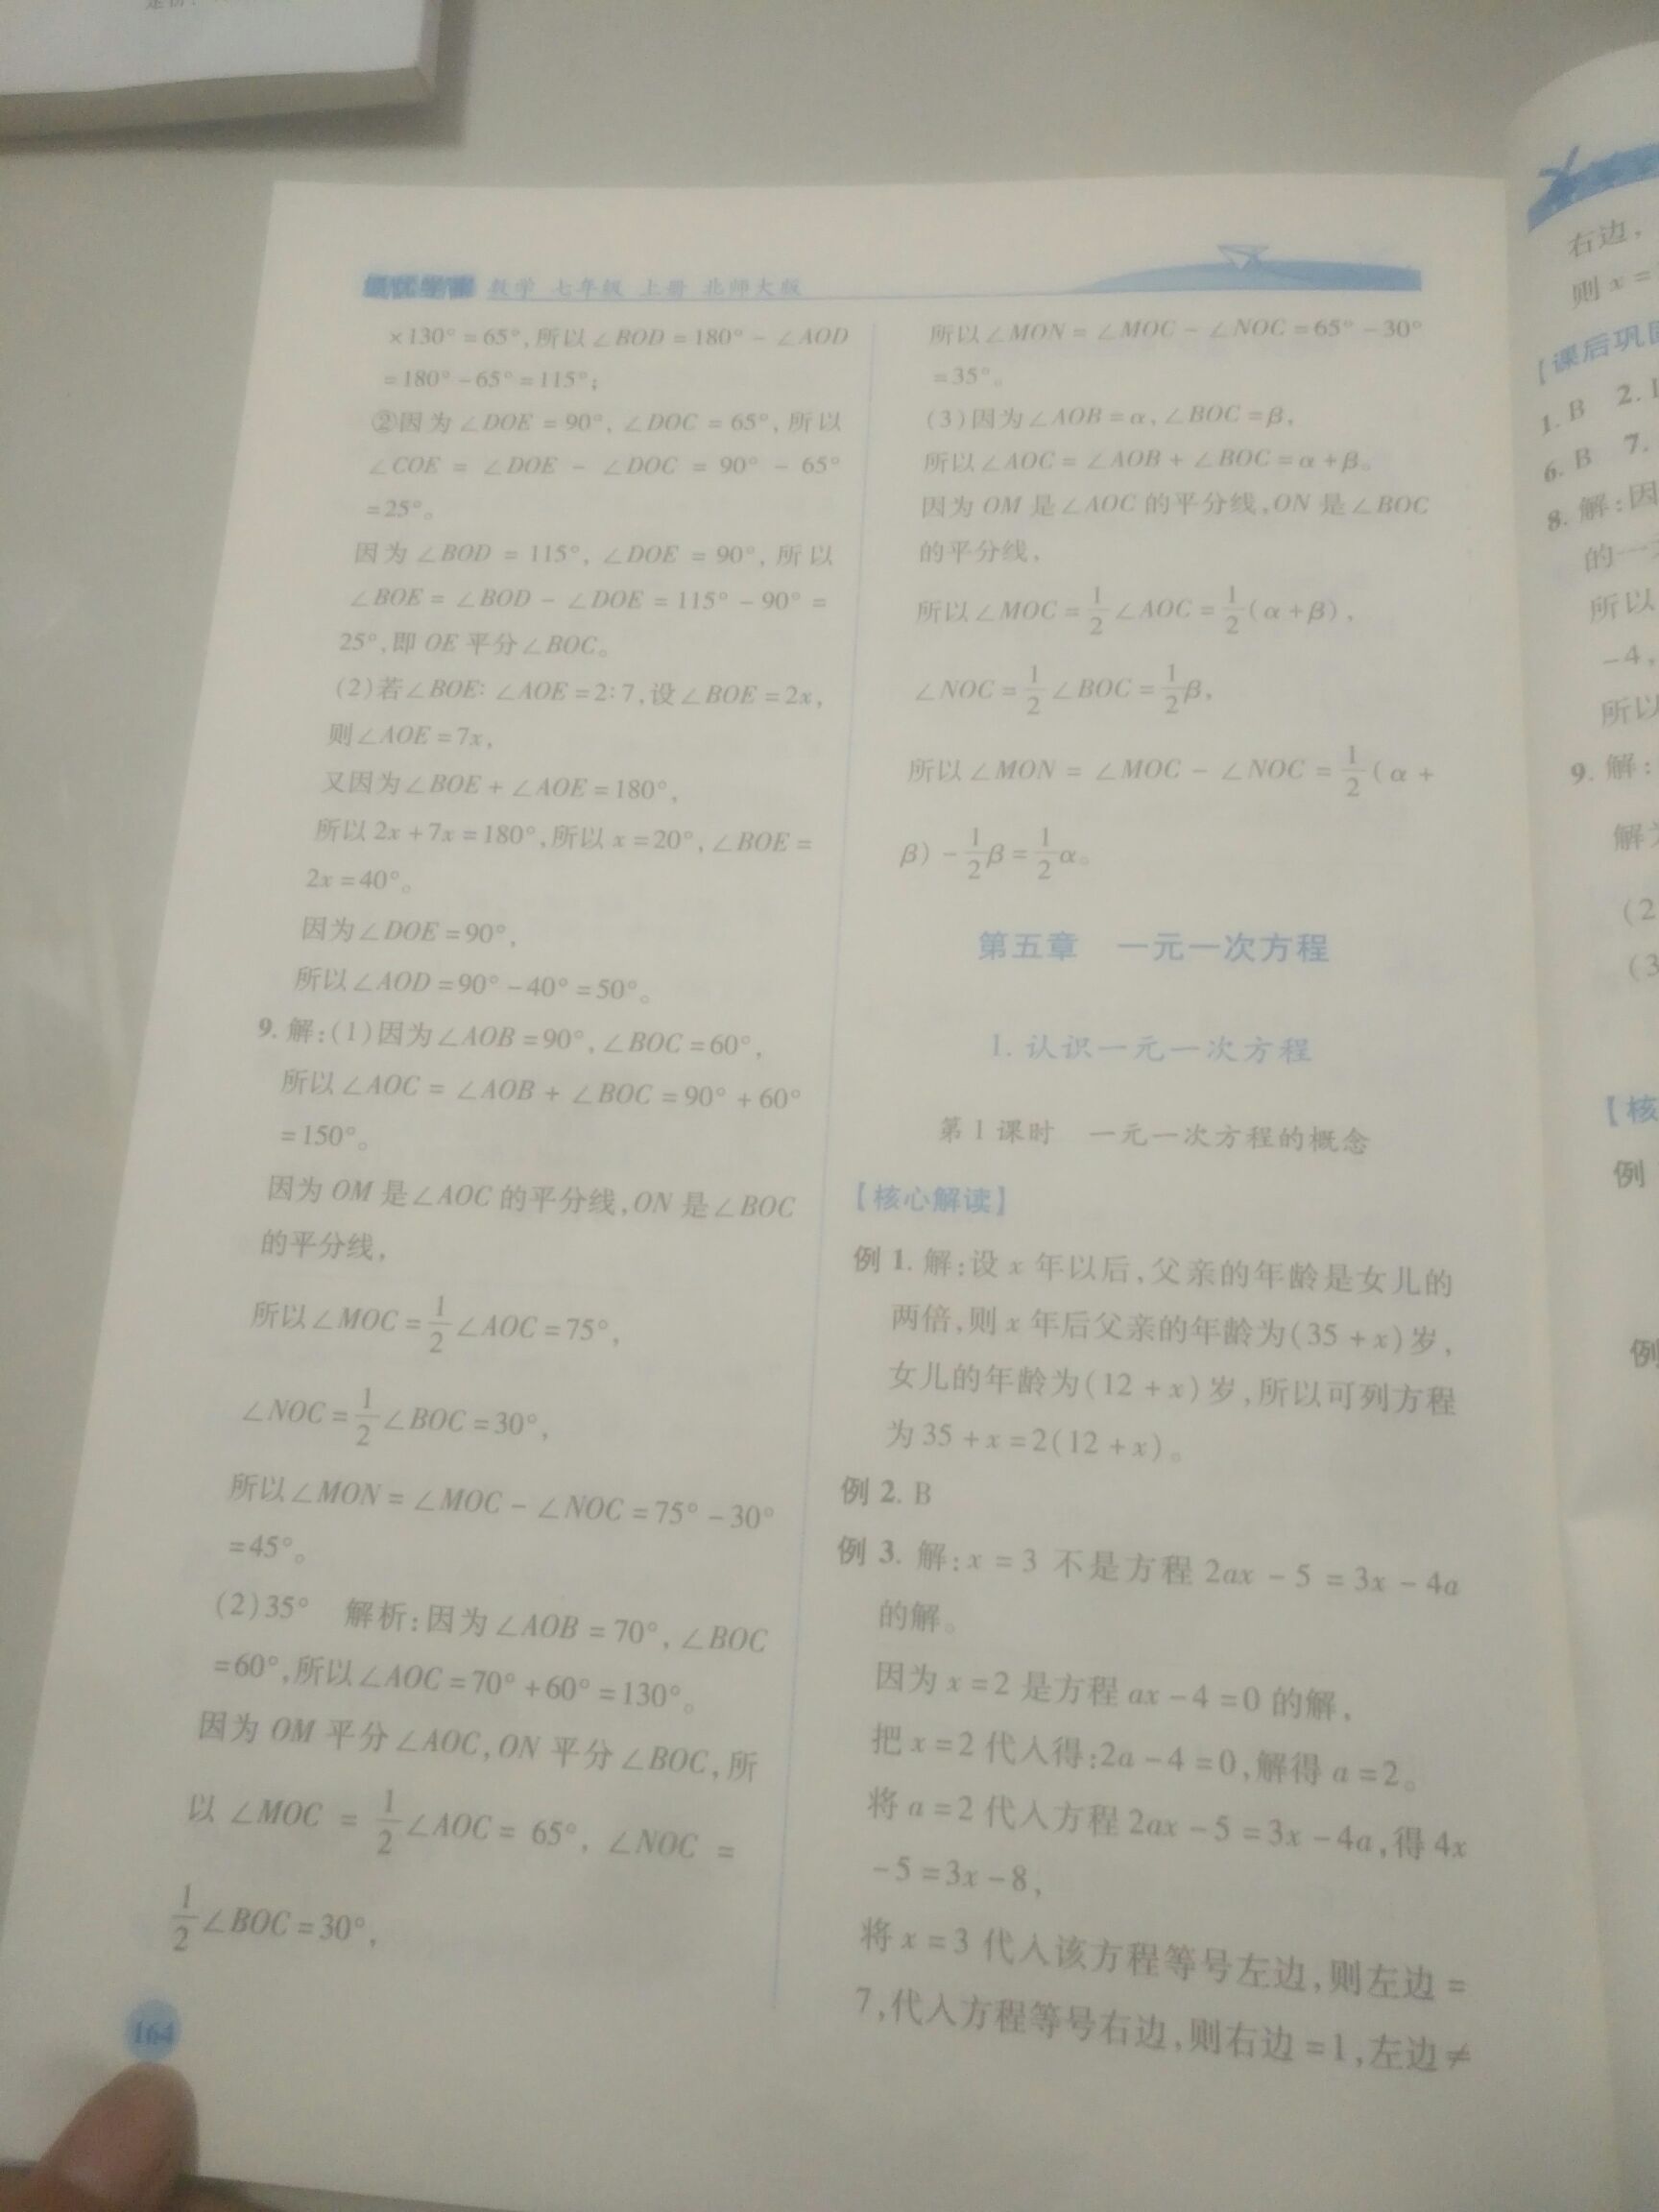 数学 七年级 上册 北师大版
×130°=65°,所以∠BOD=180°-∠AOD
=180°-65°=115°;
②因为∠DOE=90°,∠DOC=65°,所以
∠COE=∠DOE-∠DOC=90°-65°
=25°。
因为∠BOD=115°,∠DOE=90°,所以
∠BOE=∠BOD-∠DOE=115°-90°=
25°,即OE平分∠BOC。
(2)若∠BOE:∠AOE=2:7,设∠BOE=2x,
则∠AOE=7x,
又因为∠BOE+∠AOE=180°,
所以2x+7x=180°,所以x=20°,∠BOE=
2x=40°。
因为∠DOE=90°,
所以∠AOD=90°-40°=50°。
9.解:(1)因为∠AOB=90°,∠BOC=60°,
所以∠AOC=∠AOB+∠BOC=90°+60°
=150°。
因为OM是∠AOC的平分线,ON是∠BOC
的平分线,
所以∠MOC=1/2∠AOC=75°,
∠NOC=1/2∠BOC=30°,
所以∠MON=∠MOC-∠NOC=75°-30°
=45°。
(2)35° 解析:因为∠AOB=70°,∠BOC
=60°,所以∠AOC=70°+60°=130°。
因为OM平分∠AOC,ON平分∠BOC,所
以∠MOC=1/2∠AOC=65°,∠NOC=
1/2∠BOC=30°,
164
所以∠MON=∠MOC-∠NOC=65°-30°
=35°。
(3)因为∠AOB=α,∠BOC=β,
所以∠AOC=∠AOB+∠BOC=α+β。
因为OM是∠AOC的平分线,ON是∠BOC
的平分线,
所以∠MOC=1/2∠AOC=1/2(α+β),
∠NOC=1/2∠BOC=1/2β,
所以∠MON=∠MOC-∠NOC=1/2(α+
β)-1/2β=1/2α。
第五章 一元一次方程
1.认识一元一次方程
第1课时 一元一次方程的概念
【核心解读】
例1.解:设x年以后,父亲的年龄是女儿的
两倍,则x年后父亲的年龄为(35+x)岁,
女儿的年龄为(12+x)岁,所以可列方程
为35+x=2(12+x)。
例2.B
例3.解:x=3不是方程2ax-5=3x-4a
的解。
因为x=2是方程ax-4=0的解,
把x=2代入得:2a-4=0,解得a=2。
将a=2代入方程2ax-5=3x-4a,得4x
-5=3x-8,
将x=3代入该方程等号左边,则左边=
7,代入方程等号右边,则右边=1,左边≠
右边,
则x=
【课后巩
1.B 2.
6.B 7.
8.解:因
的一
所以
-4,
所以
9.解:
解
(2
(3
【核
例
例